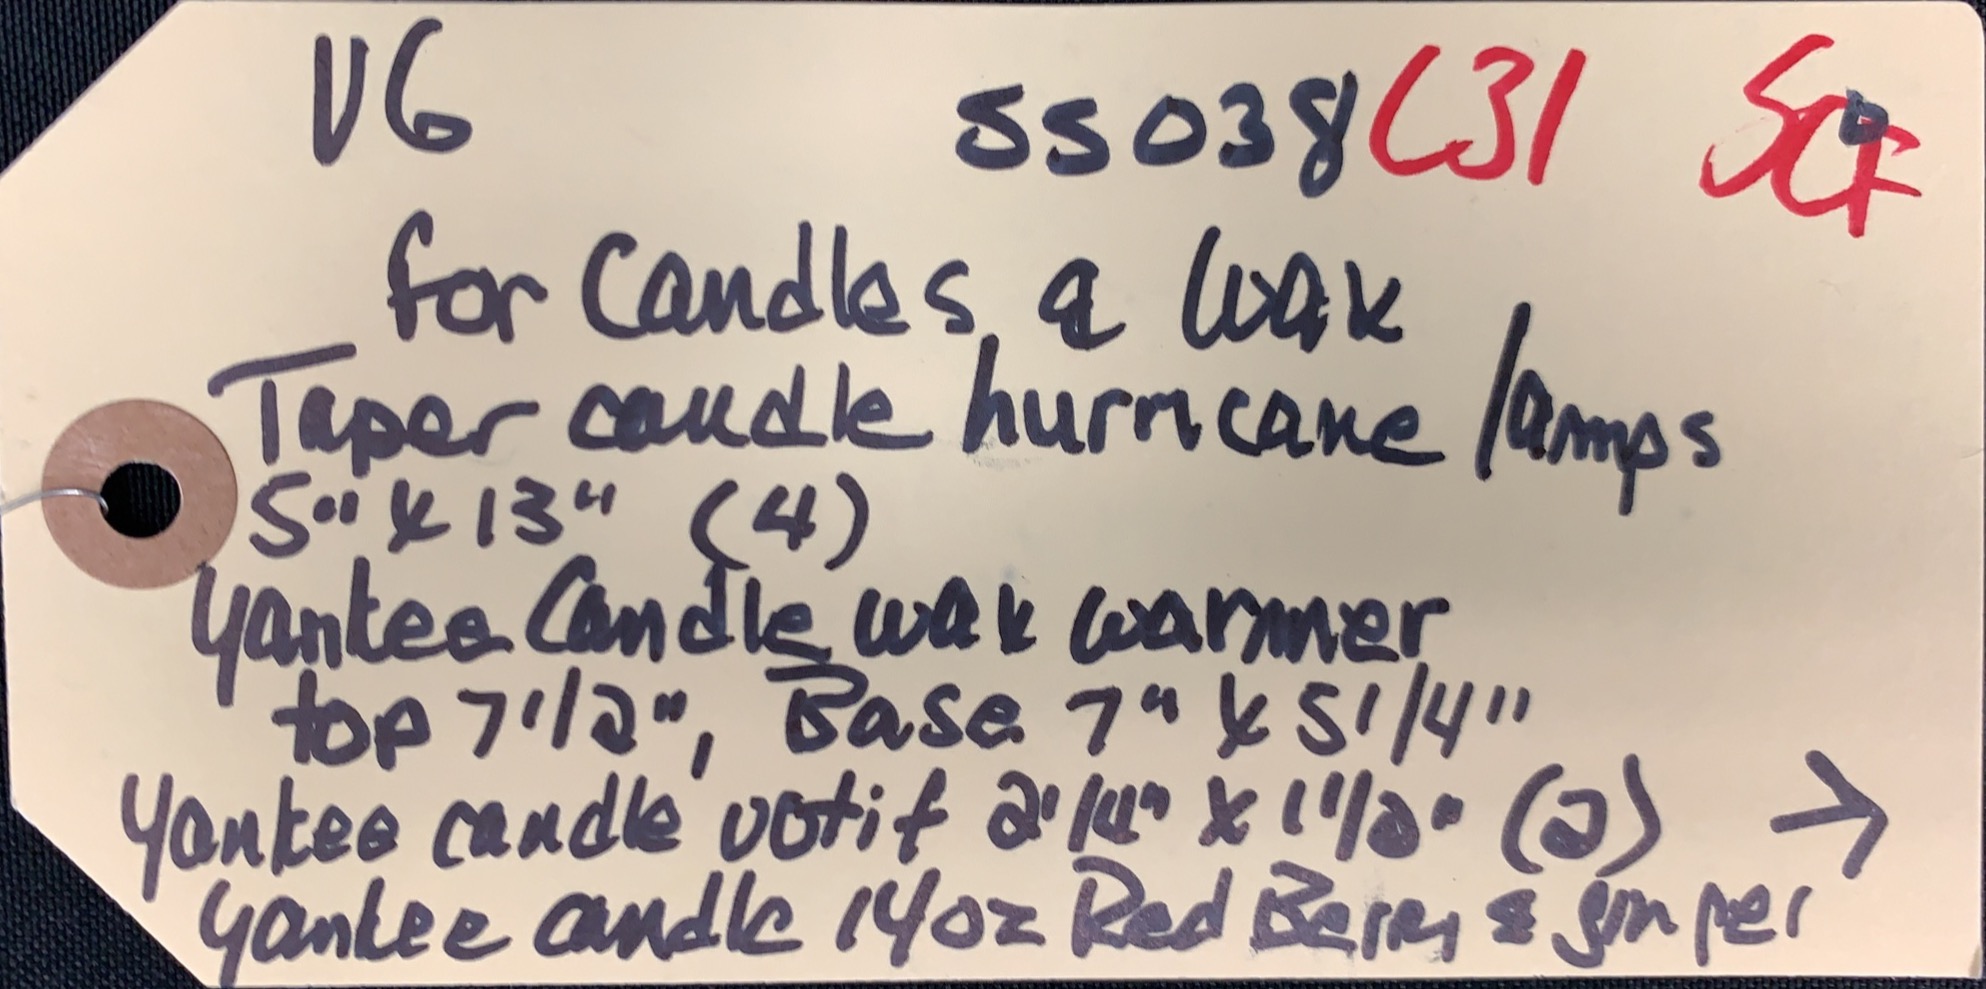 V6 SS038 C31 SCF
for Candles & Wax
Taper candle hurricane lamps
5" x 13" (4)
Yankee Candle wax warmer
top 7 1/2", Base 7" x 5 1/4"
Yankee candle votif 2 1/4" x 1 1/2" (2) →
Yankee candle 14oz Red Berry & Juniper